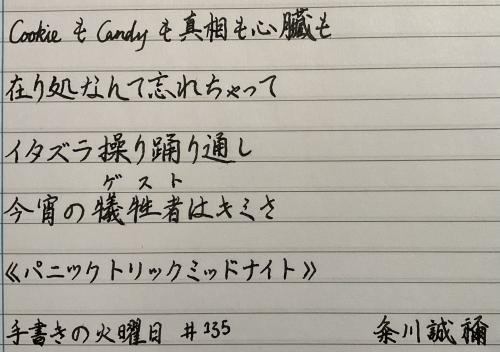 Cookie も Candy も真相も心臓も
在り処なんて忘れちゃって
イタズラ操り踊り通し
ゲスト
今宵の犠牲者はキミさ
《パニックトリックミッドナイト》
手書きの火曜日 #135 粂川誠禰